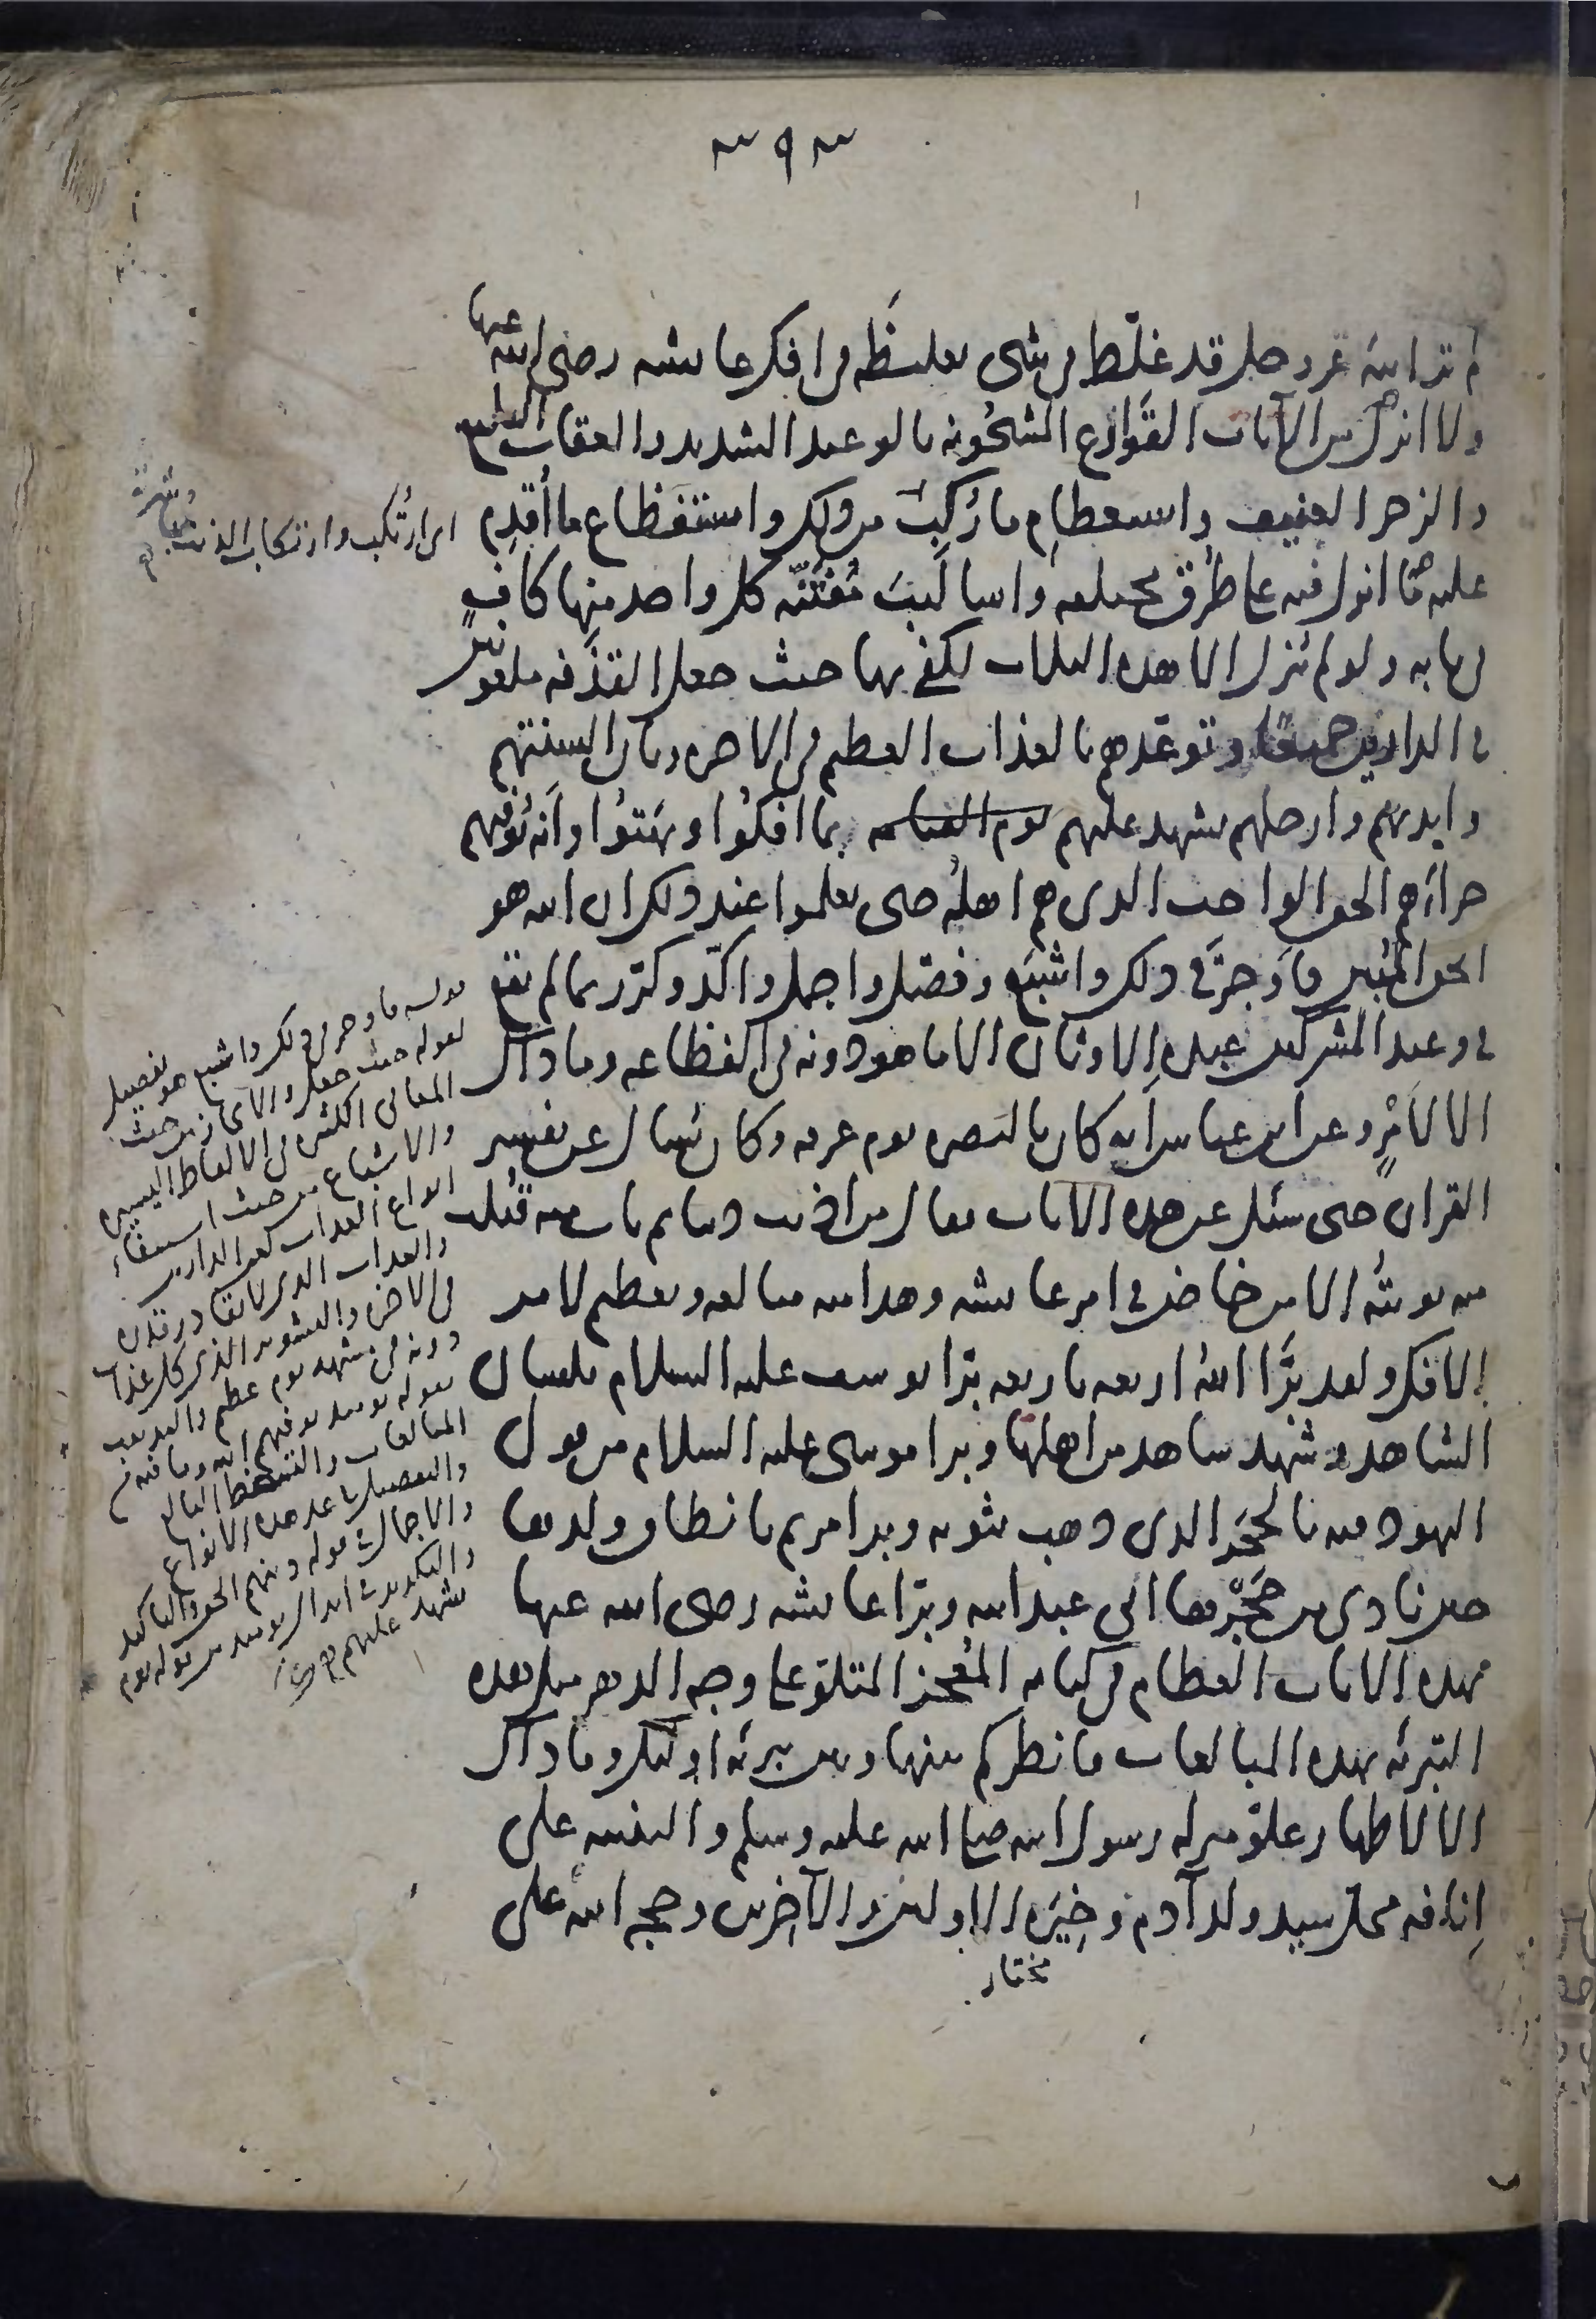 لم تر الله عز وجل قد غلّظ في شيء تغليظه في إفك عائشة رضي الله عنها
ولا أنزل من الآيات القوارع المشحونة بالوعيد الشديد والعقاب البليغ
والزجر العنيف واستعظام ما رُكِبَ من ذلك واستفظاع ما أُقدِم
عليه ما أنزل فيه على طرق مختلفة وأساليب مُفتنّة كل واحد منها كافٍ
في بابه ولو لم ينزل إلا هذه الثلاث لكفى بها حيث جعل القذفة ملعونين
في الدارين جميعًا وتوعّدهم بالعذاب العظيم في الآخرة وبأن ألسنتهم
وأيديهم وأرجلهم تشهد عليهم يوم القيامة بما أفكوا وبهتوا وأنه يُوفّيهم
جزاءهم الحق الواجب الذي هم أهله حتى يعلموا عند ذلك أن الله هو
الحق المبين فأوجز في ذلك وأشبع وفصّل وأجمل وأكّد وكرّر بما لم يقع
في وعيد المشركين عبدة الأوثان إلا ما هو دونه في الفظاعة وما ذاك
إلا لأمرٍ وعن ابن عباس أنه كان بالبصرة يوم عرفة وكان يُسأل عن تفسير
القرآن حتى سئل عن هذه الآيات فقال من أذنب ذنبا ثم تاب منه قُبلت
منه توبته إلا من خاض في أمر عائشة وهذا منه مبالغة وتعظيم لأمر
الإفك ولقد برّأ الله أربعة بأربعة برّأ يوسف عليه السلام بلسان
الشاهد وشهد شاهد من أهلها وبرأ موسى عليه السلام من قول
اليهود فيه بالحجر الذي ذهب بثوبه وبرأ مريم بإنطاق ولدها
حين نادى من حَجْرها إني عبد الله وبرّأ عائشة رضي الله عنها
بهذه الآيات العظام في كتابه المُعجز المتلوّ على وجه الدهر مثل هذه
التبرئة بهذه المبالغات فانظر كم بينها وبين تبرئة أولئك وما ذاك
إلا لإظهار علوّ منزلة رسول الله صلى الله عليه وسلم والتنبيه على
إنافة محل سيد ولد آدم وخِيَرة الأولين والآخرين وحجة الله على
مختار
أي ارتُكب وارتكاب الذنب
قوله فأوجز في ذلك وأشبع هو تفصيل
لقوله حيث جعل والإيجاز من حيث
المعاني الكثيرة في الألفاظ اليسيرة
والإشباع من حيث استيفاء
أنواع العذاب كلعن الدارين
والعذاب الذي لا يقادر قدره
دونه في مشهد يوم عظيم
بقوله يومئذ يوفيهم الله وما فيه من
والتفصيل ما عد هذه الأنواع
والإجمال في قوله دينهم الحق والتأكيد
والتكرير في إبدال يومئذ من قوله يوم
تشهد عليهم